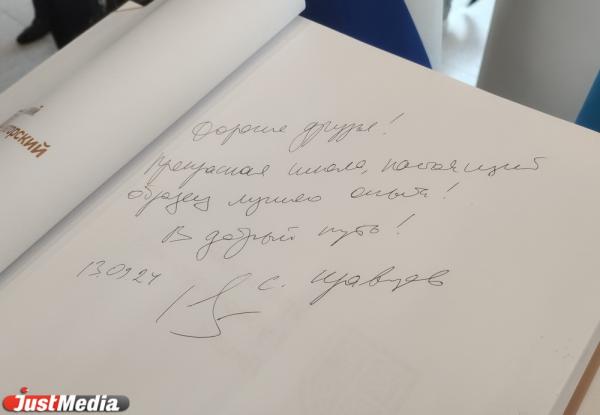 Дорогие друзья!
Прекрасная школа, настоящий
образец лучшего опыта!
В добрый путь!
13.09.24
С. Кравцов
JustMedia